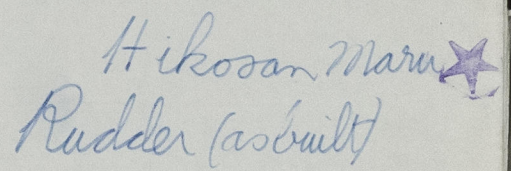 Hikosan Maru
Rudder (as built)